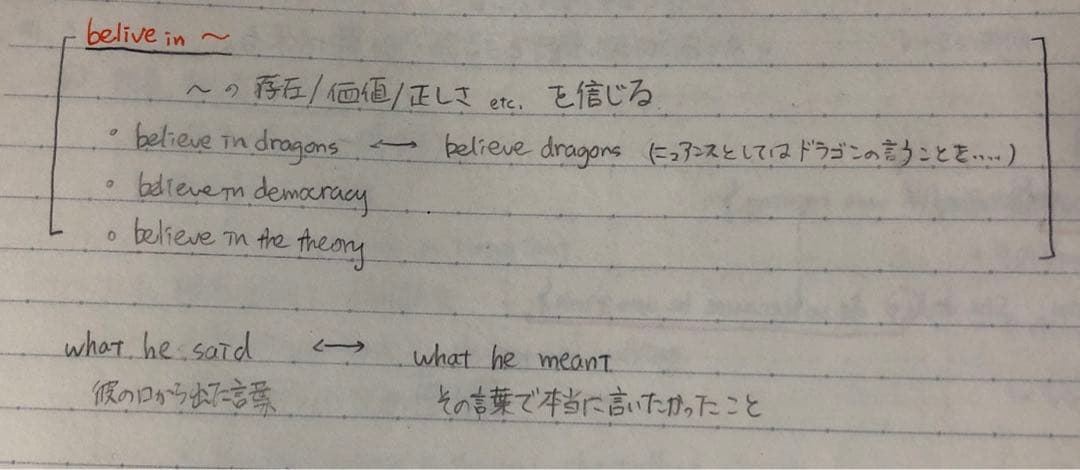 belive in ～
～の存在/価値/正しさ etc. を信じる
◦ believe in dragons ⟷ believe dragons (ニュアンスとしてはドラゴンの言うことを.....)
◦ believe in democracy
◦ believe in the theory
what he said ⟷ what he meant
彼の口から出た言葉 その言葉で本当に言いたかったこと